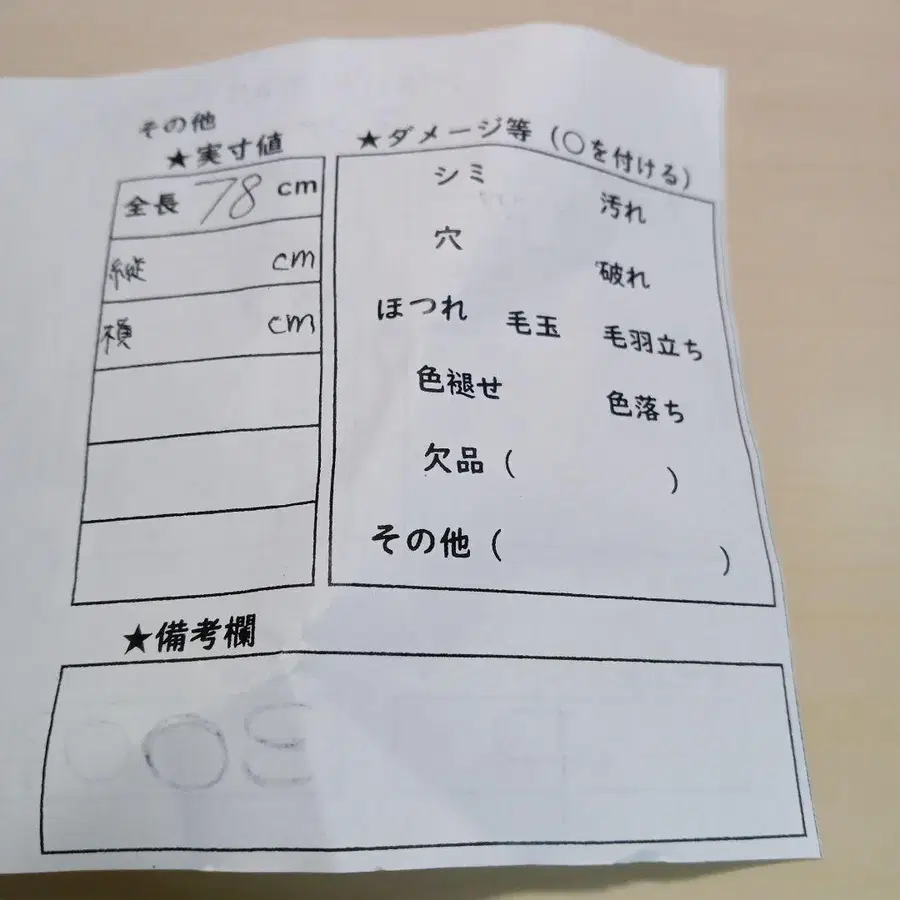 その他
★実寸値
全長 78 cm
縦 cm
横 cm
★ダメージ等（○を付ける）
シミ 汚れ
穴 破れ
ほつれ 毛玉 毛羽立ち
色褪せ 色落ち
欠品（ ）
その他（ ）
★備考欄